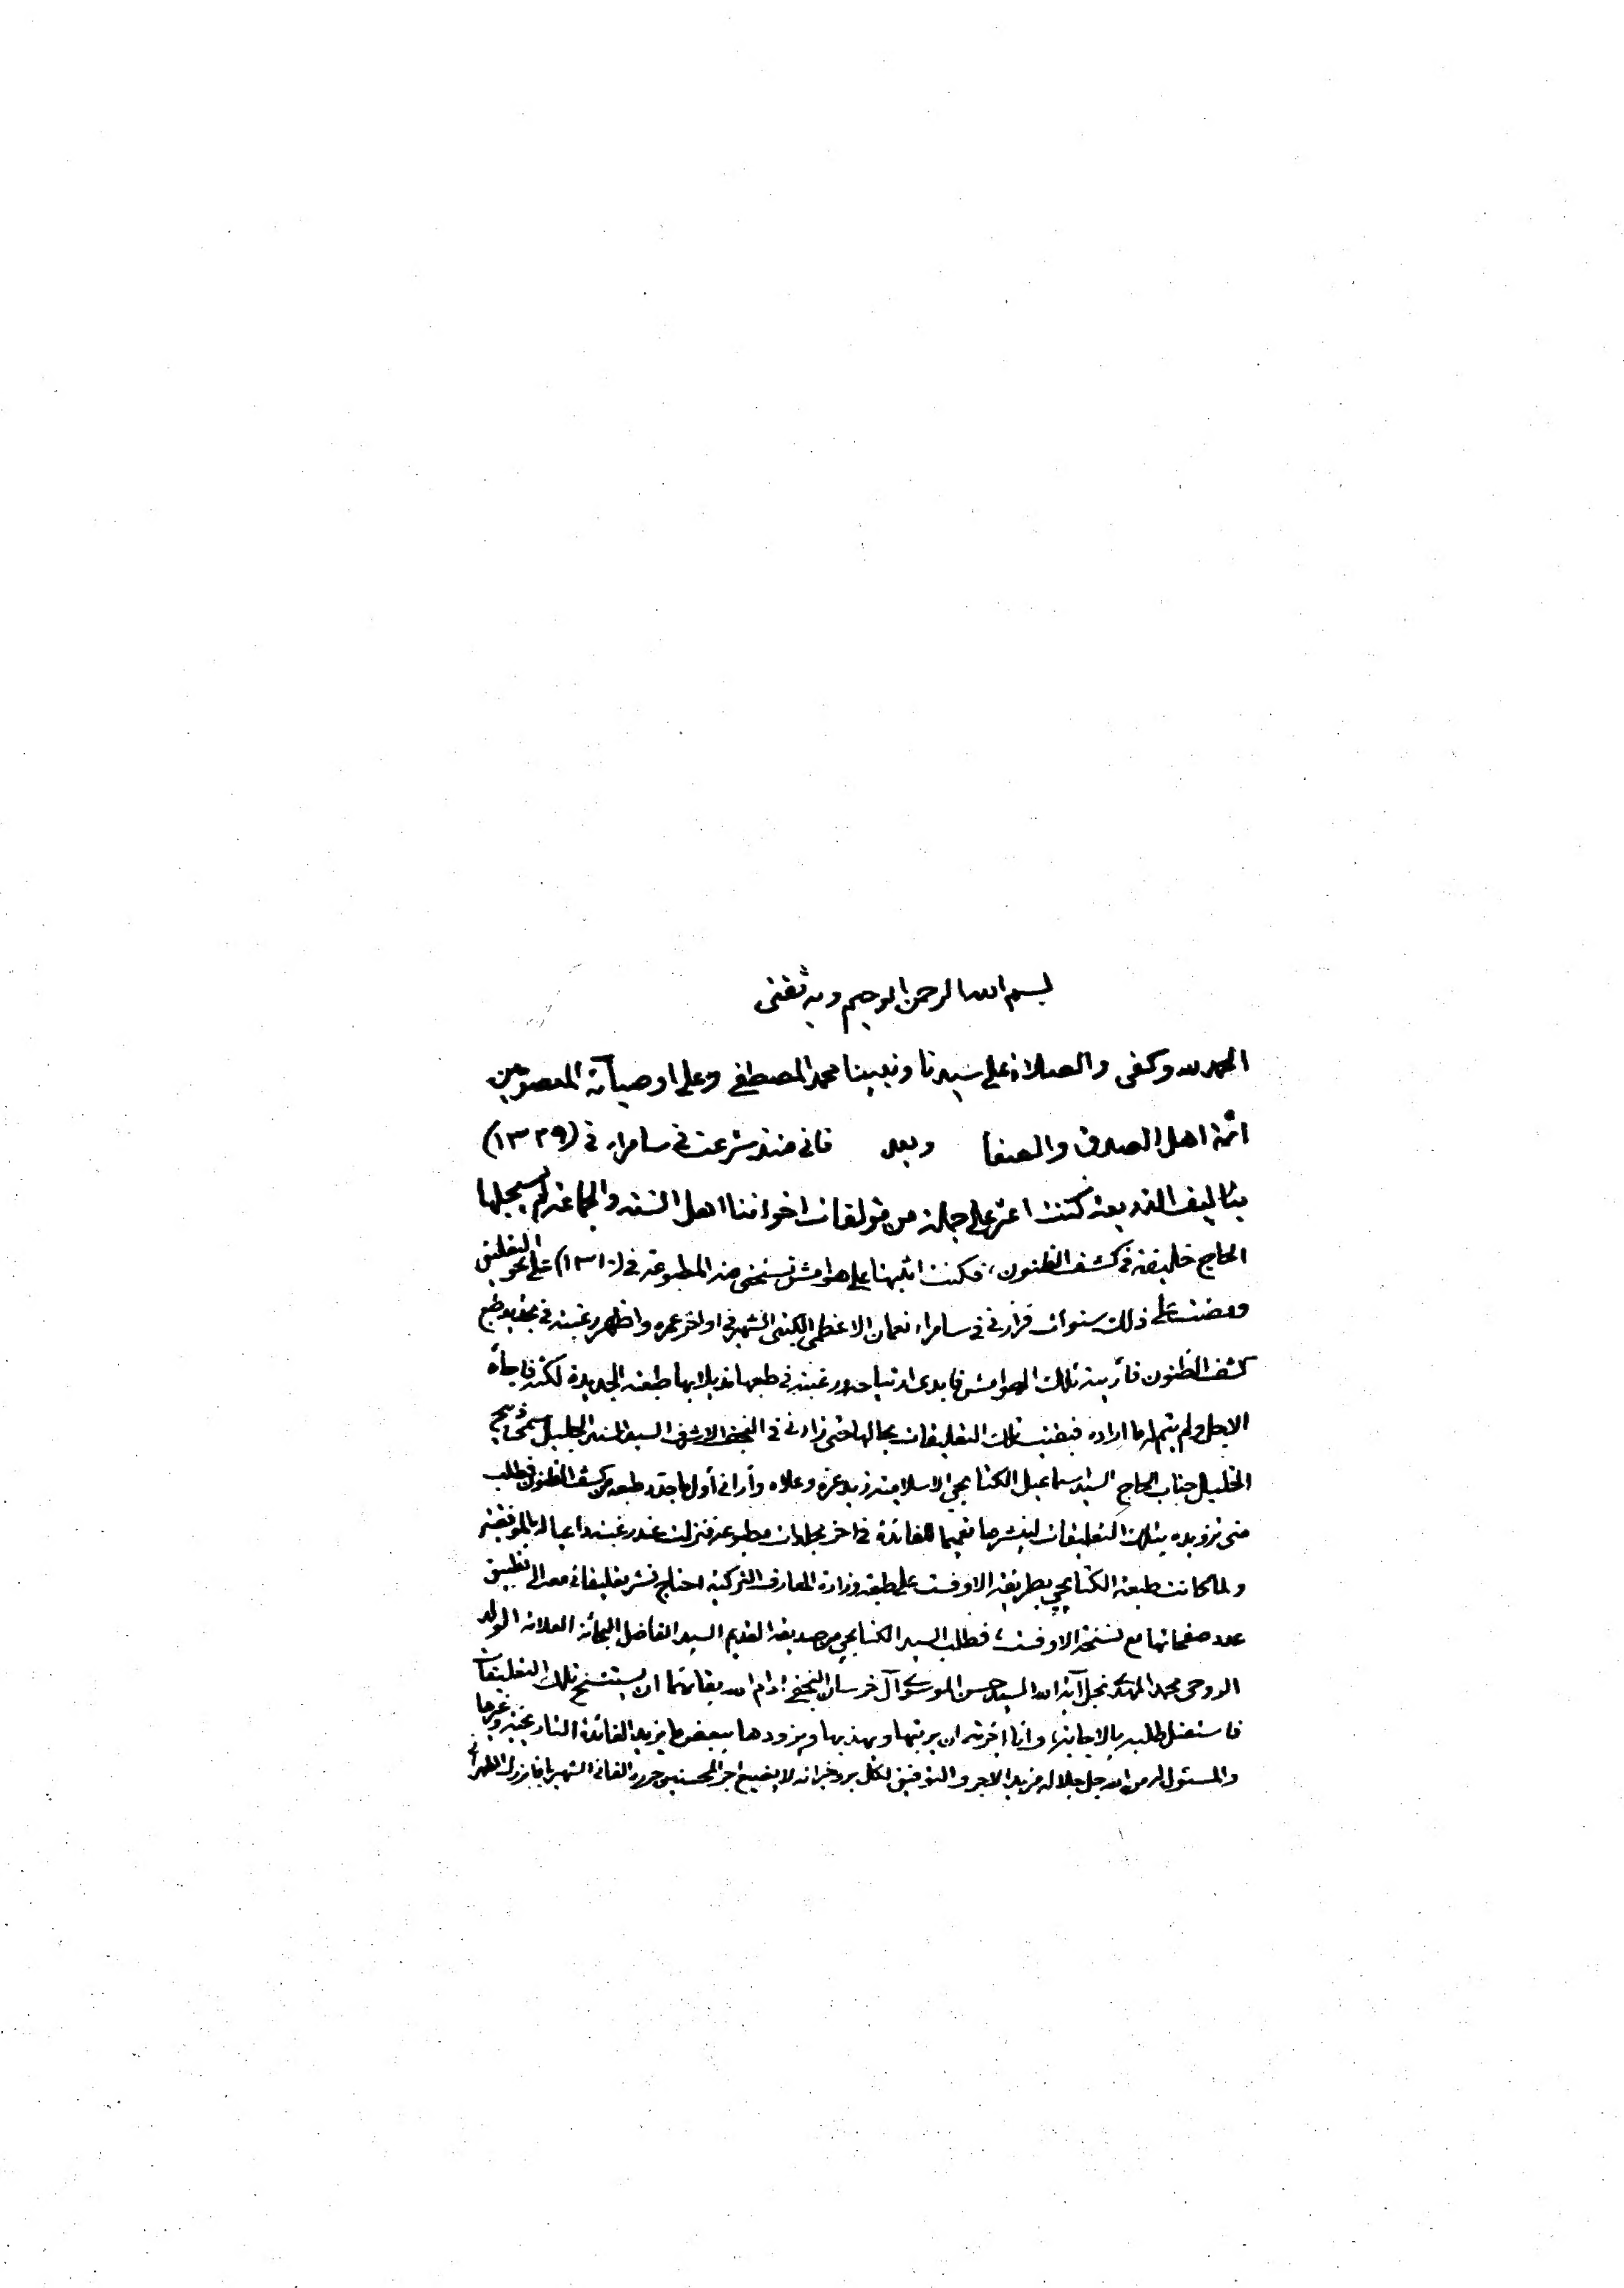 بسم الله الرحمن الرحيم وبه ثقتى
الحمد لله وكفى والصلاة على سيدنا ونبينا محمد المصطفى وعلى اوصيائه المعصومين
ائمة اهل الصدق والصفا وبعد فانى منذ شرعت فى سامراء فى (١٣٢٩)
بتاليف الذريعة كنت اعثر على جملة من مؤلفات اخواننا اهل السنة والجماعة لم يسجلها
الحاج خليفة فى كشف الظنون، فكنت اثبتها على هوامش نسختى منه المطبوعة فى (١٣١٠) على نحو التعليق
ومضت على ذلك سنوات فزارنى فى سامراء نعمان الاعظمى الكتبى الشهير فى اواخر عمره واظهر رغبته فى تجديد طبع
كشف الظنون فأريته تلك الهوامش فابدى ارتياحه ورغبته فى طبعها تذييلا بها طبعته الجديدة لكنه فاجأه
الاجل ولم يتم له ما اراده فبقيت تلك التعليقات بحالها حتى زارنى فى النجف الاشرف السيد السند الجليل سمى ذبيح
الخليل جناب الحاج السيد اسماعيل الكتابجى الاسلامية زيد عزه وعلاه وأرانى أول ما جدد طبعه من كشف الظنون فطلب
منى تزويده بتلك التعليقات لينشرها تعميما للفائدة فى اخر مجلدات مطبوعه فنزلت عند رغبته داعيا له بالموفقية
ولما كانت طبعة الكتابچى بطريقة الاوفست على طبعة وزارة المعارف التركية احتاج نشر تعليقاتى معه الى تطبيق
عدد صفحاتها مع نسخة الاوفست، فطلب السيد الكتابچى من صديقه القديم السيد الفاضل البحاثة العلامة الولد
الروحى محمد المهدى نجل آية الله السيد حسن الموسوى آل خرسان النجفى ادام الله بقائهما ان يستنسخ تلك التعليقات
فاستقبل طلبه بالاجابة، وانا اجزته ان يرتبها ويهذبها ويزودها ببعض ما يزيد الفائدة التاريخية وغيرها
والمسئول له من الله جل جلاله مزيد الاجر والتوفيق لكل بر وخير انه لا يضيع اجر المحسنين حرره الفانى الشهير باقا بزرك الطهرانى